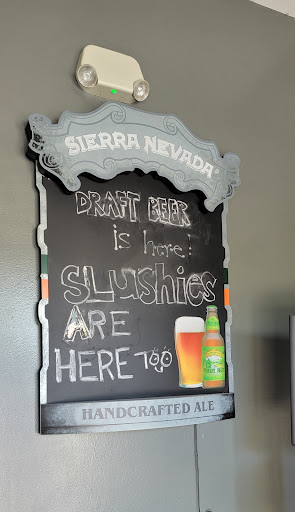 SIERRA NEVADA®
DRAFT BEER
is here!
SLushies
ARE
HERE TOO
HANDCRAFTED ALE